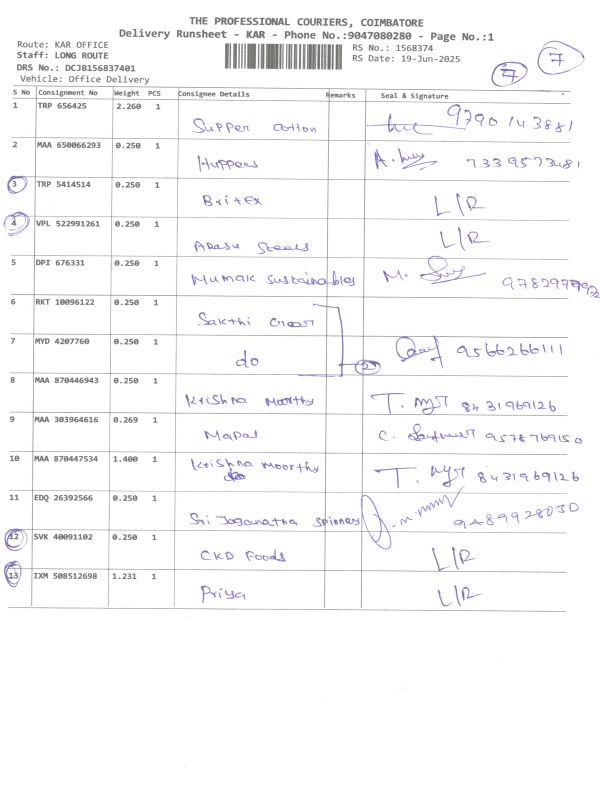 THE PROFESSIONAL COURIERS, COIMBATORE
Delivery Runsheet - KAR - Phone No.:9047080280 - Page No.:1
Route: KAR OFFICE
Staff: LONG ROUTE
DRS No.: DCJB156837401
Vehicle: Office Delivery
RS No.: 1568374
RS Date: 19-Jun-2025
7 7
S No Consignment No Weight PCS Consignee Details Remarks Seal & Signature
1 TRP 656425 2.260 1 Supper Cotton 9790143881
2 MAA 650066293 0.250 1 Huppers 7339573481
3 TRP 5414514 0.250 1 Britex L/R
4 VPL 522991261 0.250 1 Arasu Steels L/R
5 DPI 676331 0.250 1 Mumak Sustainables M.
6 RKT 10096122 0.250 1 Sakthi
7 MYD 4207760 0.250 1 do 2 9566266111
8 MAA 870446943 0.250 1 Krishna Moorthy T. 8431969126
9 MAA 303964616 0.269 1 Mapal C. 9578769150
10 MAA 870447534 1.400 1 Krishna Moorthy T. 8431969126
11 EDQ 26392566 0.250 1 Sri Jaganatha Spinners 9489928030
12 SVK 40091102 0.250 1 CKD Foods L/R
13 IXM 508512698 1.231 1 Priya L/R